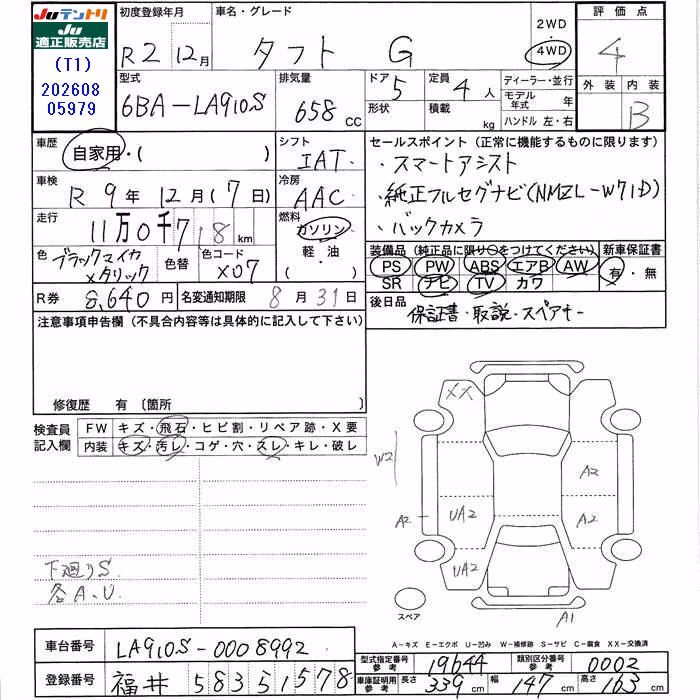 Juテントリ
適正販売店
(T1)
202608
05979
初度登録年月
R2 12月
車名・グレード
タフト G
2WD
・
4WD
評価点
4
型式
6BA-LA910S
排気量
658 cc
ドア
5
形状
定員
4 人
積載
kg
ディーラー・並行
モデル年式 年
ハンドル 左・右
外装
内装
B
車歴
自家用・( )
シフト
IAT
セールスポイント(正常に機能するものに限ります)
・スマートアシスト
・純正フルセグナビ(NMZL-W71D)
・バックカメラ
車検
R 9年 12月(7日)
冷房
AAC
走行
11万0千718 km
燃料
ガソリン
・
軽・油
( )
色
ブラックマイカ
メタリック
色替
色コード
X07
装備品(純正品に限り○をつけてください)
PS PW ABS エアB AW
SR ナビ TV カワ
新車保証書
有・無
R券 8,640円
名変通知期限 8月31日
後日品
保証書・取説・スペアキー
注意事項申告欄(不具合内容等は具体的に記入して下さい)
修復歴 有〔箇所
検査員
記入欄
FW キズ・飛石・ヒビ割・リペア跡・X要
内装 キズ・汚レ・コゲ・穴・スレ・キレ・破レ
XX
W2
A2
A2
UA2
A2
UA2
A1
スペア
下廻りS
各A、U
A-キズ E-エクボ U-凹み W-補修跡 S-サビ C-腐食 XX-交換済
車台番号 LA910S-0008992
登録番号 福井 583 5 1578
型式指定番号
参考
19644
類別区分番号
参考
0002
車庫証明用
参考
長さ 339cm 幅 147cm 高さ 163cm